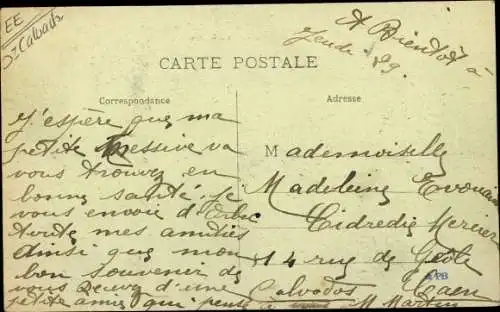 EE
Calvados
A Bientôt à
Jeudi 29.
CARTE POSTALE
Correspondance
Adresse
J'espère que ma
petite missive va
vous trouvez en
bonne santé. Je
vous envoie d'
toute mes amitiés
ainsi que mon
bon souvenir de
vous recevez d'une
petite amie qui pense à
M. Martin
Mademoiselle
Madeleine
Cidredie Mercier
14 rue de Geôle
Caen
Calvados